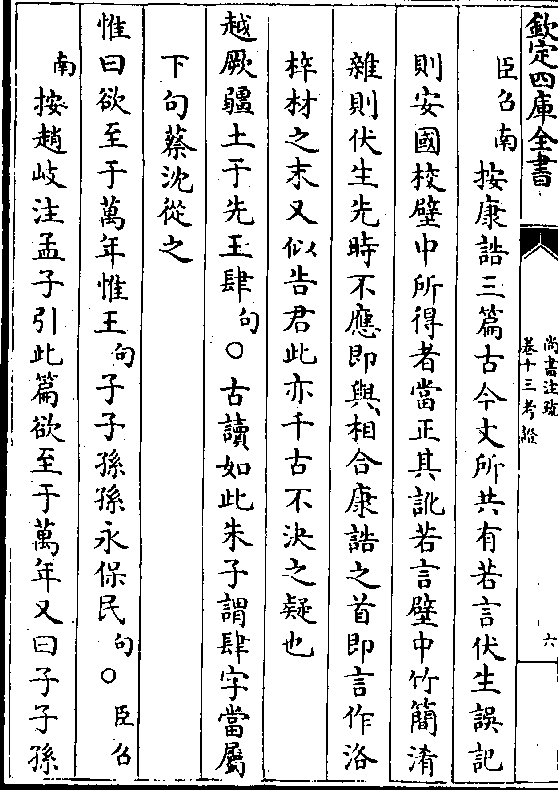 欽定四庫全書
尚書注疏
卷十三考證
六
臣召南按康誥三篇古今文所共有若言伏生誤記
則安國校壁中所得者當正其訛若言壁中竹簡淆
雜則伏生先時不應即與相合康誥之首即言作洛
梓材之末又似告君此亦千古不決之疑也
越厥疆土于先王肆句○古讀如此朱子謂肆字當屬
下句蔡沈從之
惟曰欲至于萬年惟王句子子孫孫永保民句○臣召
南按趙岐注孟子引此篇欲至于萬年又曰子子孫